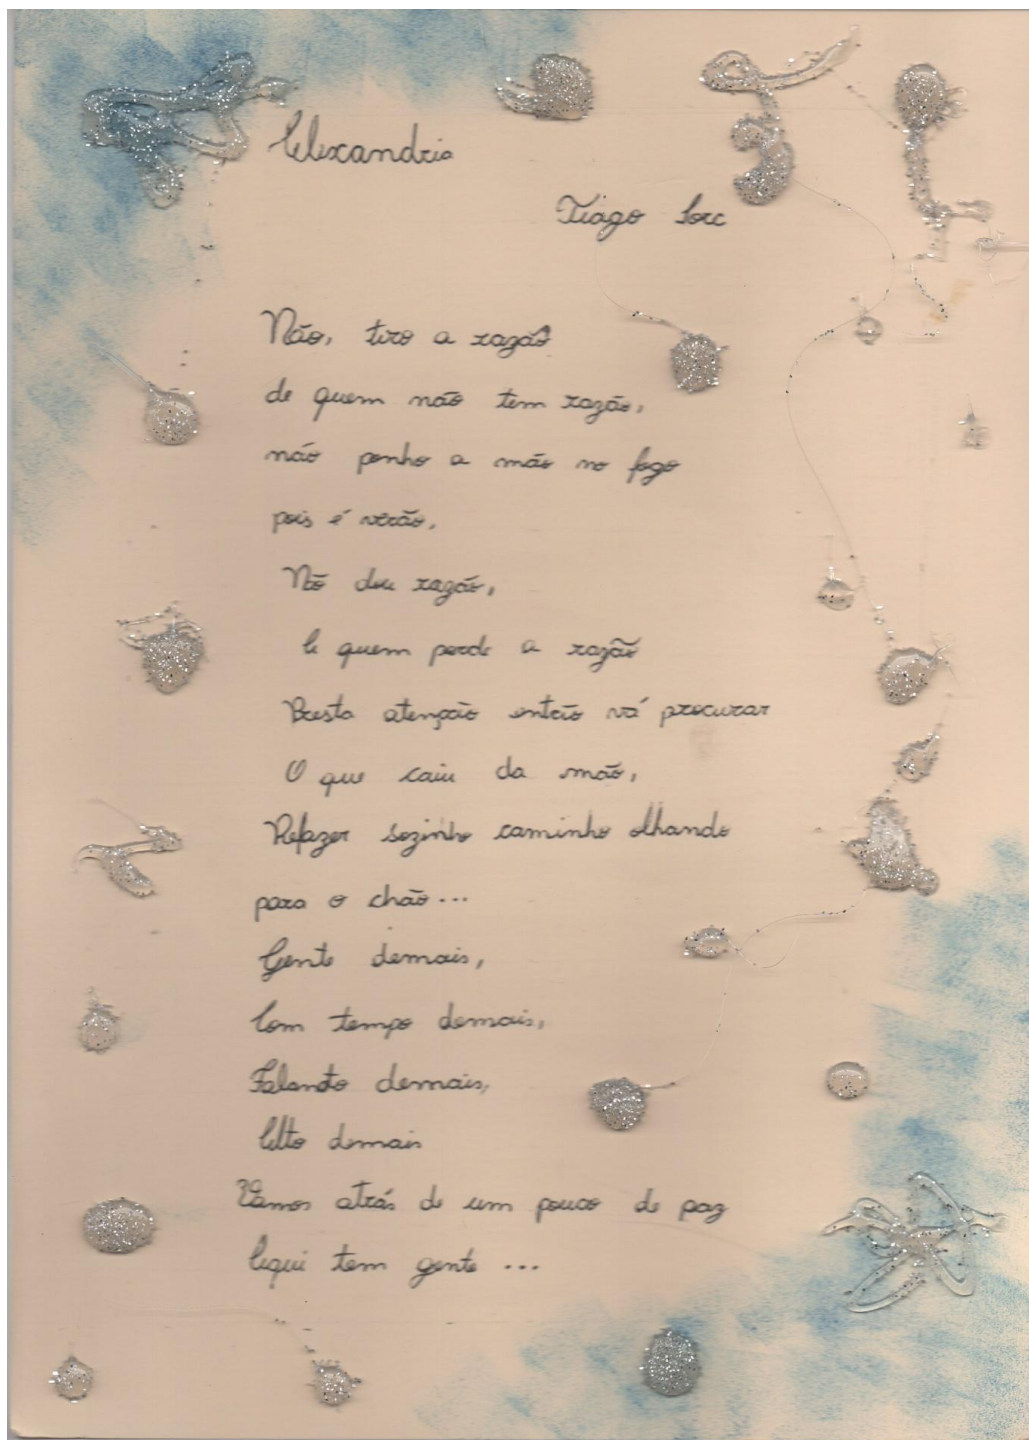 Alexandria
Tiago Iorc
Não, tiro a razão
de quem não tem razão,
não ponho a mão no fogo
pois é verão,
Não dou razão,
A quem perde a razão
Presta atenção então vá procurar
O que caiu da mão,
Refazer sozinho caminho olhando
para o chão...
Gente demais,
Com tempo demais,
Falando demais,
Alto demais
Vamos atrás de um pouco de paz
Aqui tem gente ...